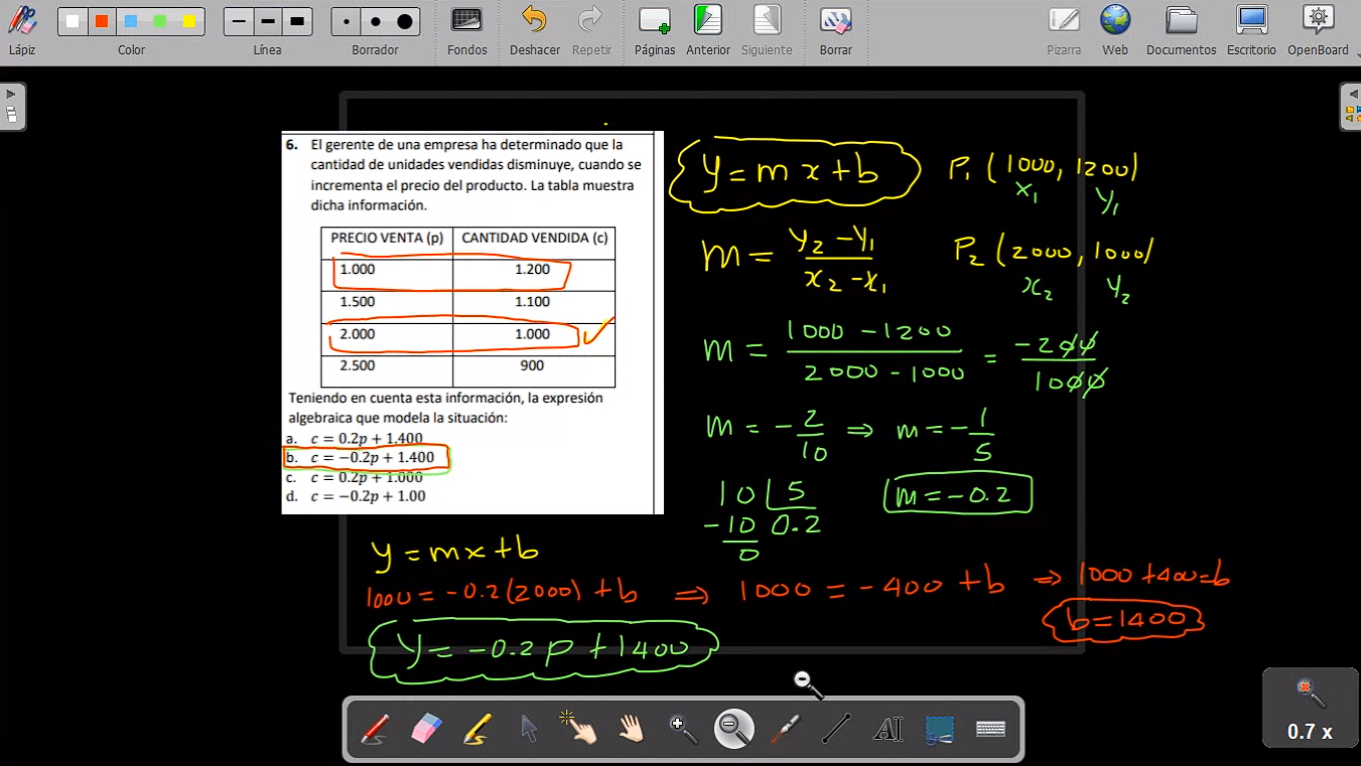 Lápiz Color Línea Borrador Fondos Deshacer Repetir Páginas Anterior Siguiente Borrar Pizarra Web Documentos Escritorio OpenBoard
6. El gerente de una empresa ha determinado que la
cantidad de unidades vendidas disminuye, cuando se
incrementa el precio del producto. La tabla muestra
dicha información.
PRECIO VENTA (p) CANTIDAD VENDIDA (c)
1.000 1.200
1.500 1.100
2.000 1.000
2.500 900
Teniendo en cuenta esta información, la expresión
algebraica que modela la situación:
a. c = 0.2p + 1.400
b. c = −0.2p + 1.400
c. c = 0.2p + 1.000
d. c = −0.2p + 1.00
y = mx + b
P₁ (1000, 1200)
x₁ y₁
m = y₂ − y₁ / x₂ − x₁
P₂ (2000, 1000)
x₂ y₂
m = 1000 − 1200 / 2000 − 1000 = −200 / 1000
m = − 2/10 ⇒ m = − 1/5
10 5
−10 0.2
0
m = −0.2
y = mx + b
1000 = −0.2(2000) + b ⇒ 1000 = −400 + b ⇒ 1000 + 400 = b
b = 1400
y = −0.2p + 1400
AI
0.7 x